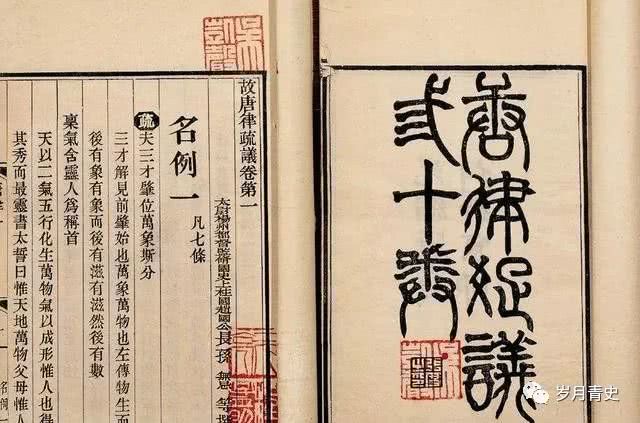 唐律疏議
弎十卷
故唐律疏議卷第一
太尉揚州都督監修國史上柱國趙國公長孫無忌等撰
名例一 凡七條
疏夫三才肇位萬象斯分
三才解見前肇始也萬象萬物也左傳物生而
後有象有象而後有滋有滋然後有數
稟氣含靈人爲稱首
天以二氣五行化生萬物氣以成形惟人也得
其秀而最靈書太誓曰惟天地萬物父母惟人
名例一
岁月青史